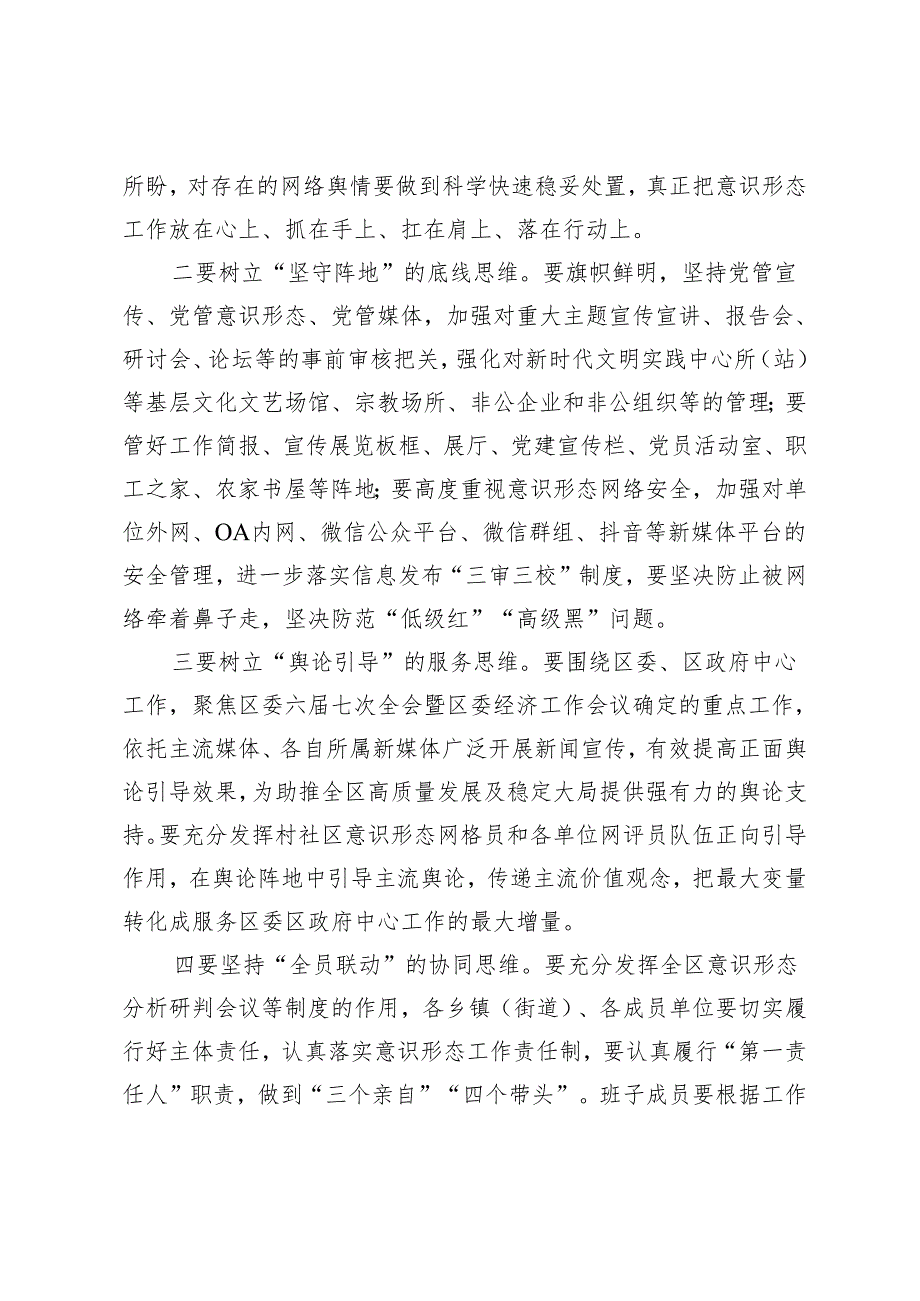 所盼，对存在的网络舆情要做到科学快速稳妥处置，真正把意识形态
工作放在心上、抓在手上、扛在肩上、落在行动上。
二要树立“坚守阵地”的底线思维。要旗帜鲜明，坚持党管宣
传、党管意识形态、党管媒体，加强对重大主题宣传宣讲、报告会、
研讨会、论坛等的事前审核把关，强化对新时代文明实践中心所（站）
等基层文化文艺场馆、宗教场所、非公企业和非公组织等的管理；要
管好工作简报、宣传展览板框、展厅、党建宣传栏、党员活动室、职
工之家、农家书屋等阵地；要高度重视意识形态网络安全，加强对单
位外网、OA内网、微信公众平台、微信群组、抖音等新媒体平台的
安全管理，进一步落实信息发布“三审三校”制度，要坚决防止被网
络牵着鼻子走，坚决防范“低级红”“高级黑”问题。
三要树立“舆论引导”的服务思维。要围绕区委、区政府中心
工作，聚焦区委六届七次全会暨区委经济工作会议确定的重点工作，
依托主流媒体、各自所属新媒体广泛开展新闻宣传，有效提高正面舆
论引导效果，为助推全区高质量发展及稳定大局提供强有力的舆论支
持。要充分发挥村社区意识形态网格员和各单位网评员队伍正向引导
作用，在舆论阵地中引导主流舆论，传递主流价值观念，把最大变量
转化成服务区委区政府中心工作的最大增量。
四要坚持“全员联动”的协同思维。要充分发挥全区意识形态
分析研判会议等制度的作用，各乡镇（街道）、各成员单位要切实履
行好主体责任，认真落实意识形态工作责任制，要认真履行“第一责
任人”职责，做到“三个亲自”“四个带头”。班子成员要根据工作